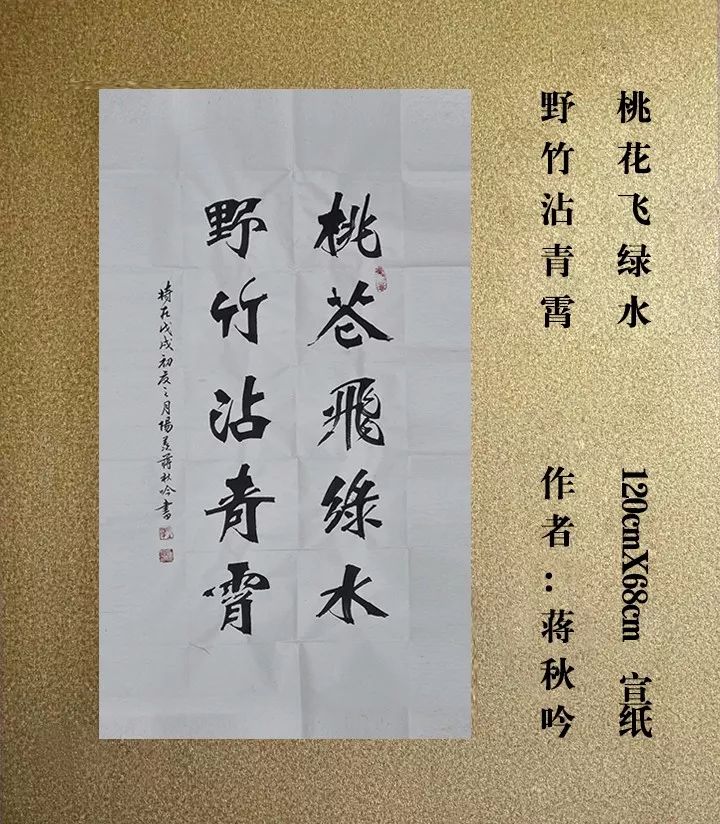 桃花飞绿水
野竹沾青霄
120cmX68cm 宣纸
作者:蒋秋吟
桃花飛綠水
野竹沾青霄
時在戊戌初夏之月陽羨蔣秋吟書